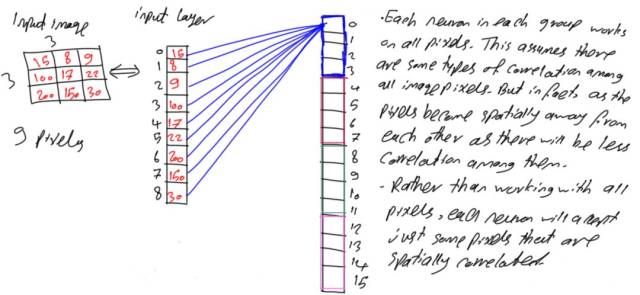 Input image
3
3
15 8 9
100 17 22
200 150 30
9 pixels
input layer
0 15
1 8
2 9
3 100
4 17
5 22
6 200
7 150
8 30
0
1
2
3
4
5
6
7
8
9
10
11
12
13
14
15
- Each neuron in each group works
on all pixels. This assumes there
are some types of correlation among
all image pixels. But in facts as the
pixels become spatially away from
each other as there will be less
correlation among them.
- Rather than working with all
pixels, each neuron will accept
just some pixels that are
spatially correlated.